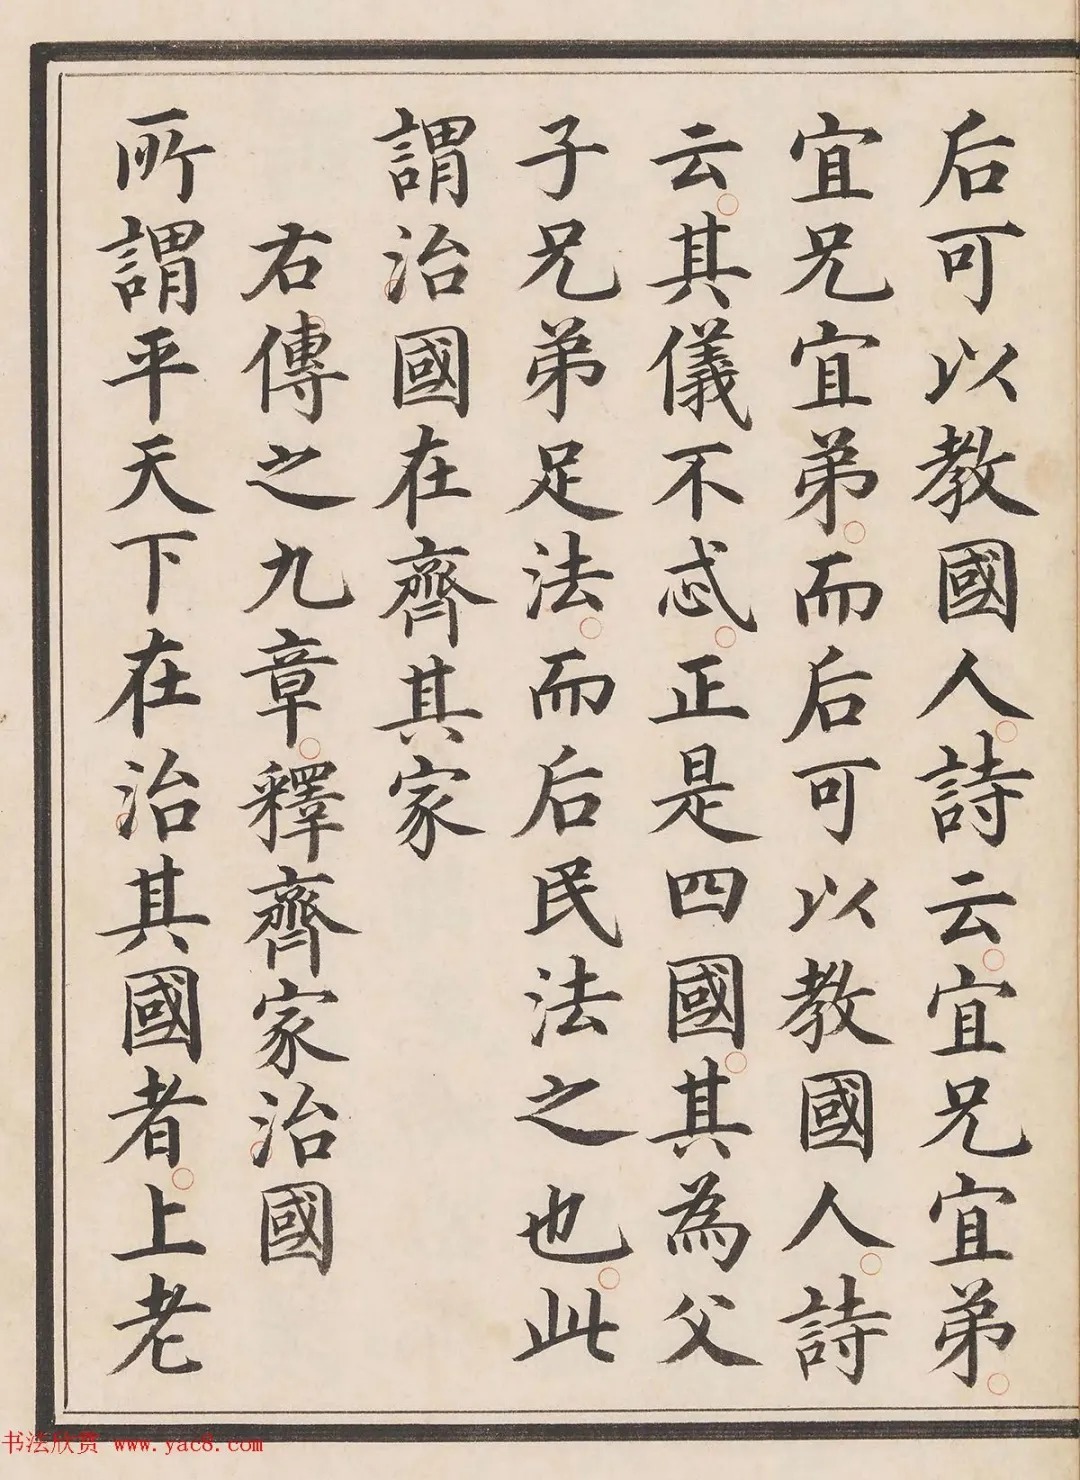 后可以教國人詩云宜兄宜弟
宜兄宜弟而后可以教國人詩
云其儀不忒正是四國其為父
子兄弟足法而后民法之也此
謂治國在齊其家
右傳之九章釋齊家治國
所謂平天下在治其國者上老
书法欣赏 www.yac8.com